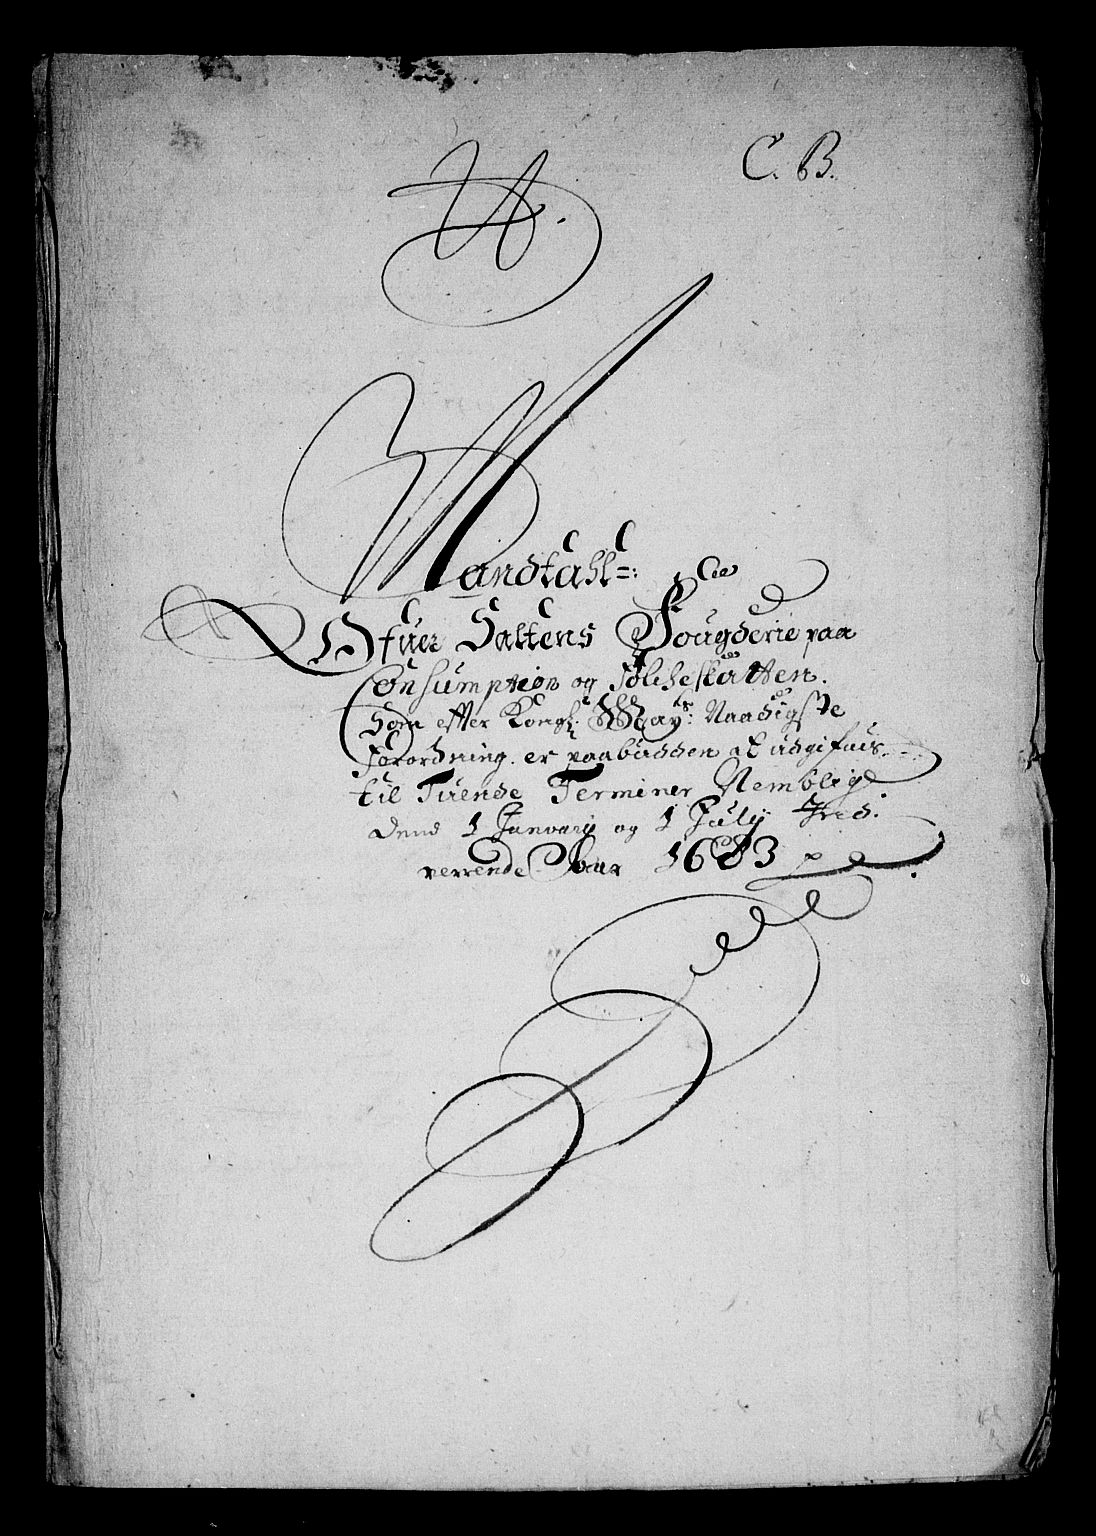 C. B.
A.
Mandtahl=:
Ofuer Saltens Fougderie paa
Consumption og Folcheskatten.
Som effter Kongl: May: Naadigste
Forordning er paabudden at udgifuis
til Tuende Terminer Nemblig
dend 1 January og 1 July
1683